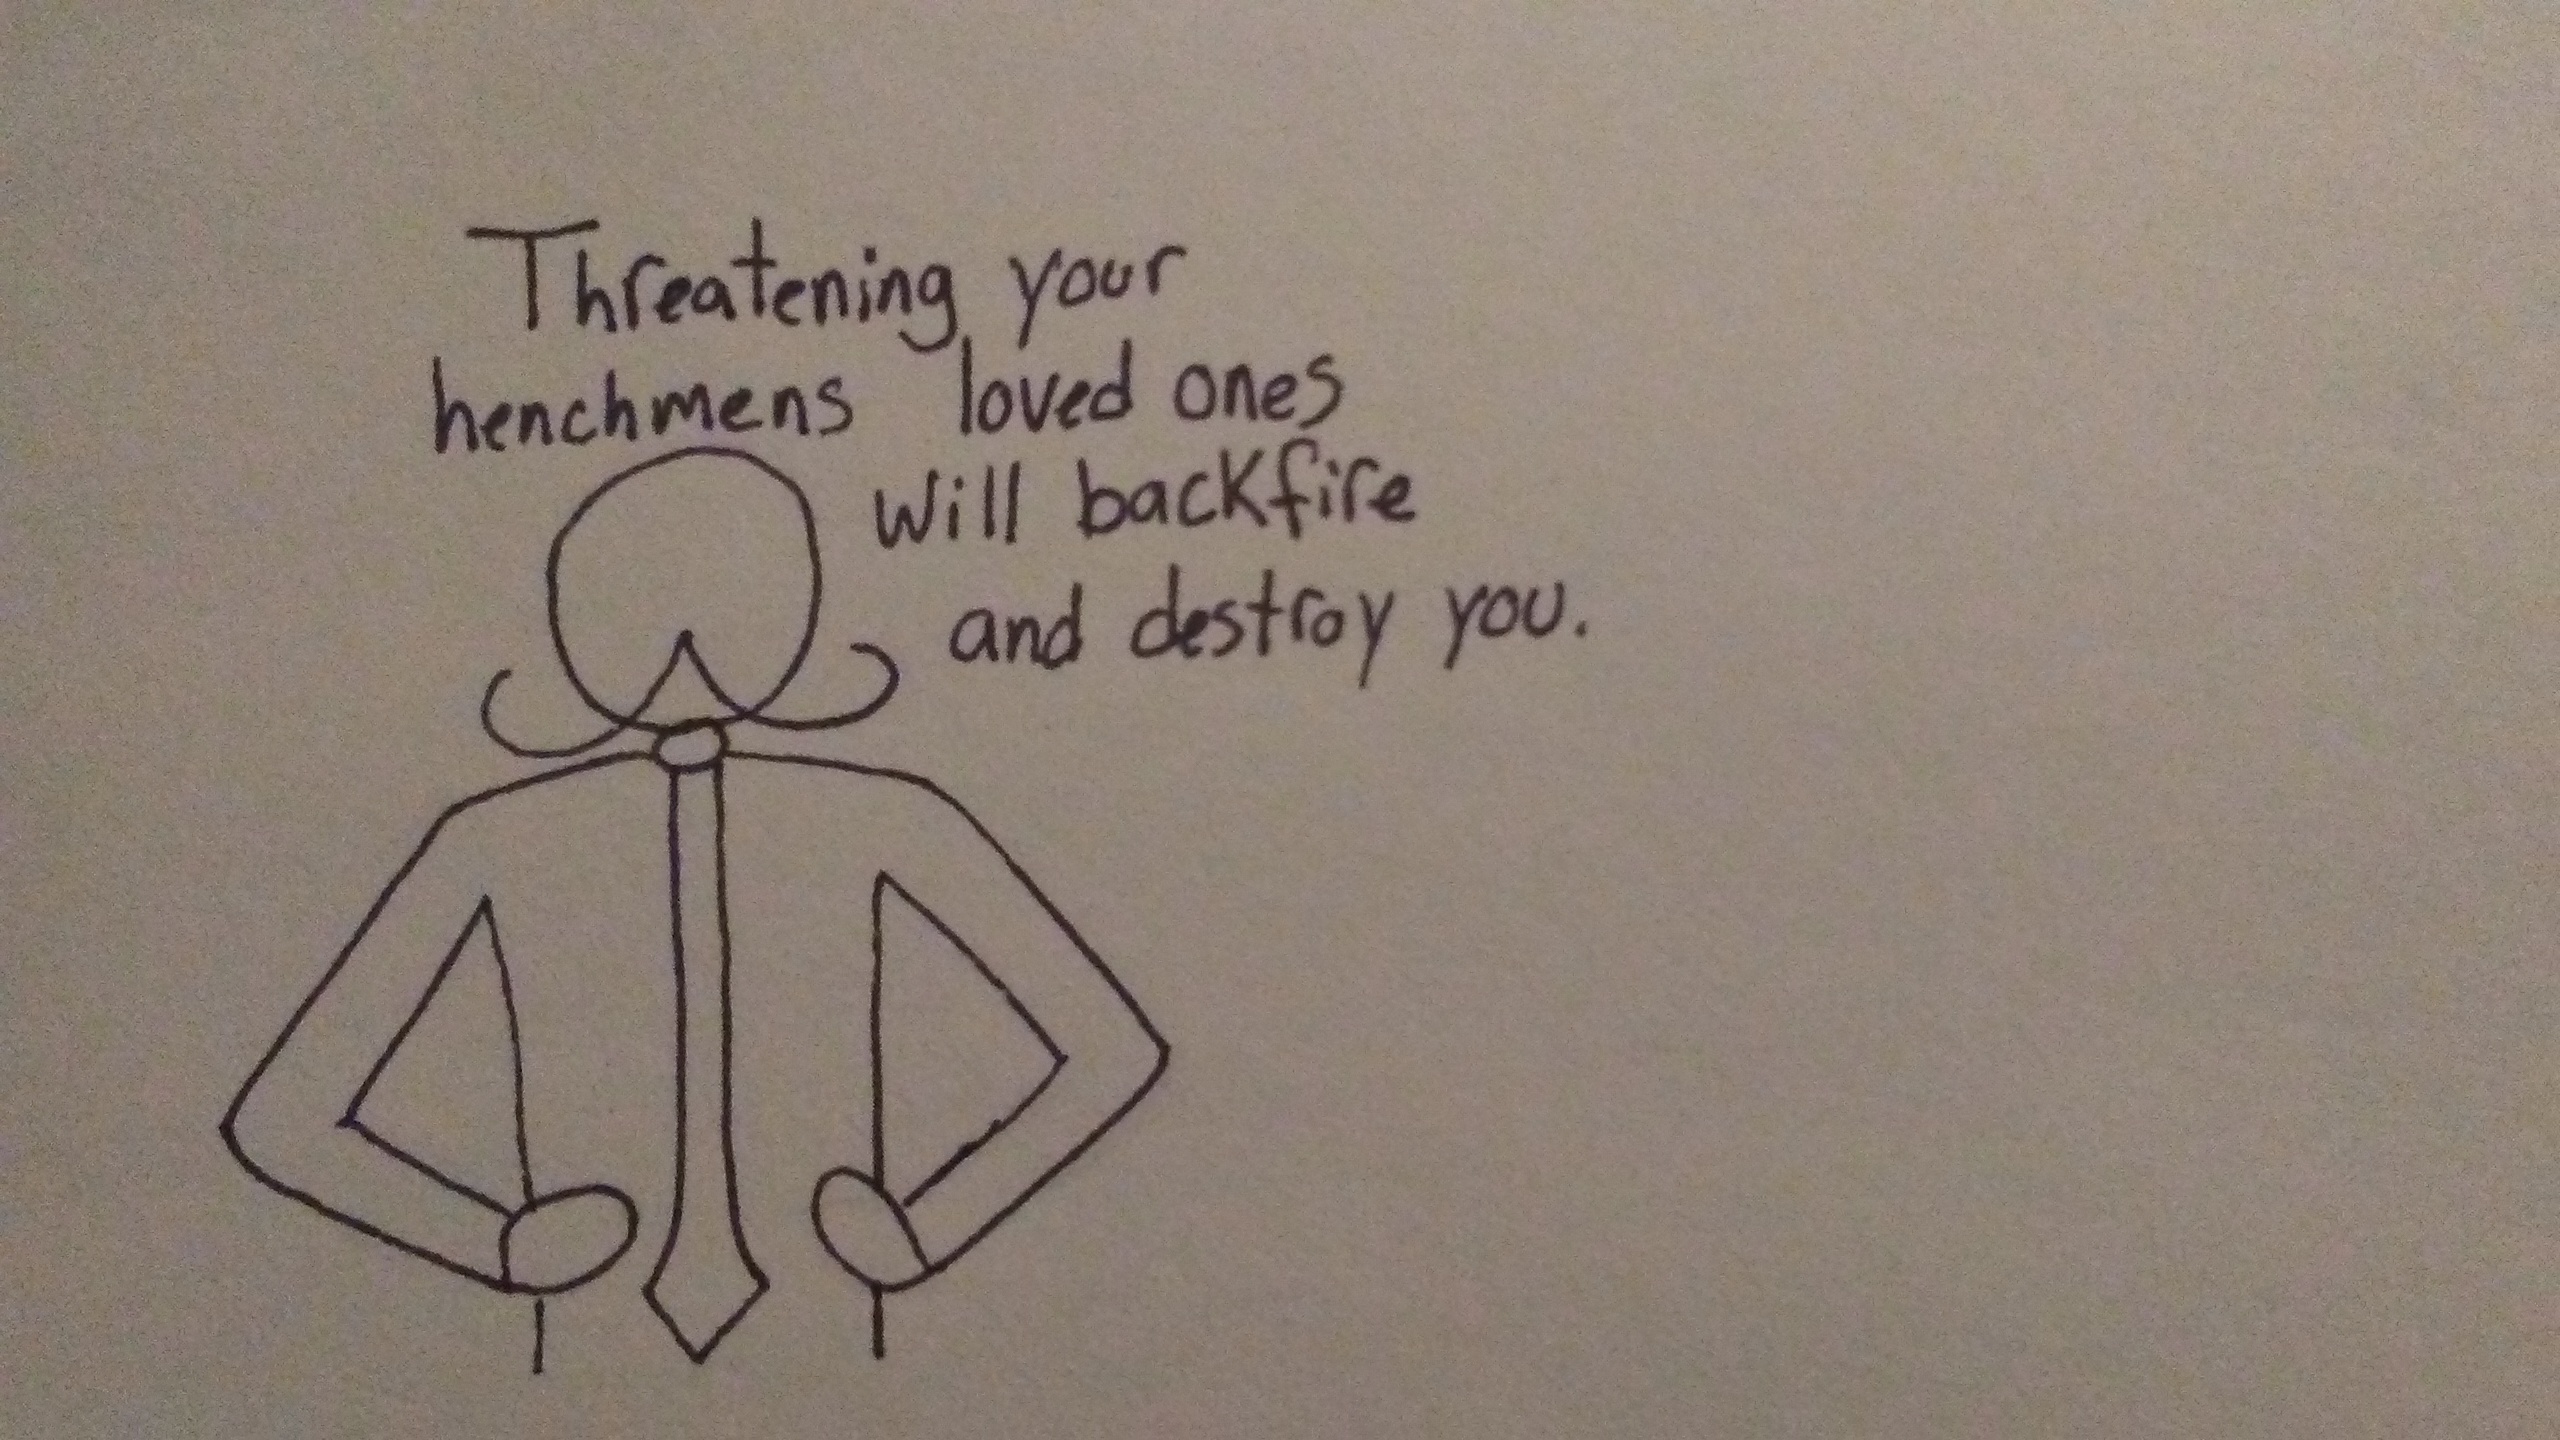 Threatening your
henchmens loved ones
will backfire
and destroy you.